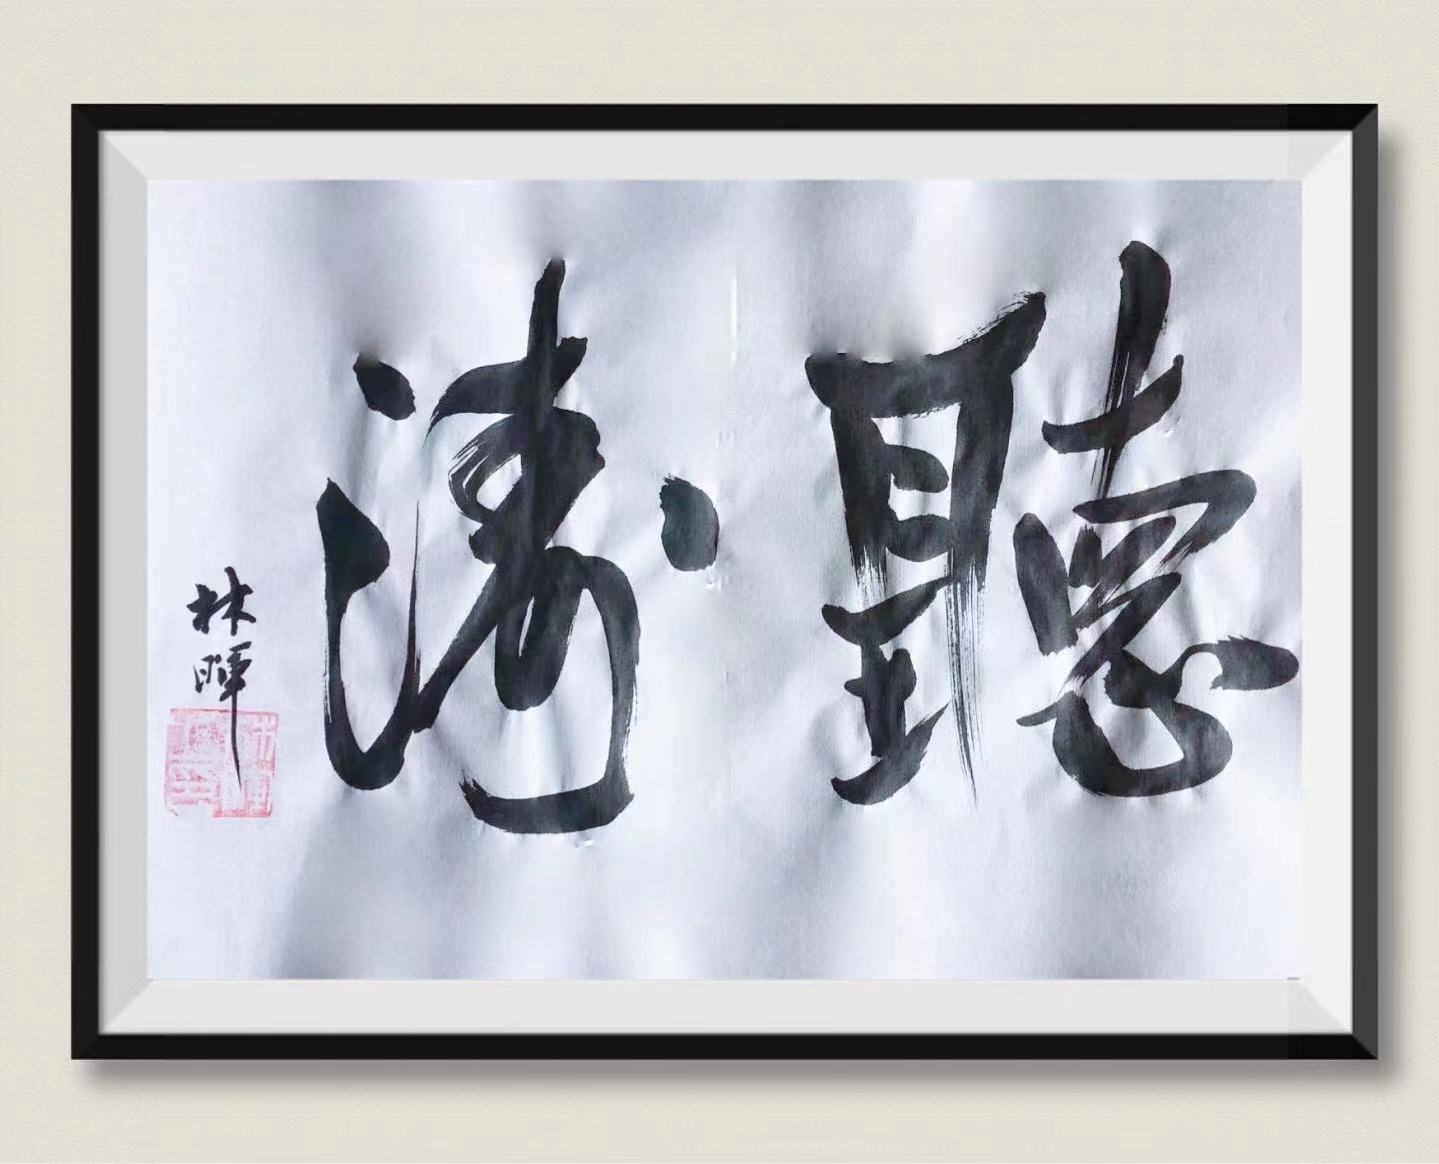 聽濤
林暉